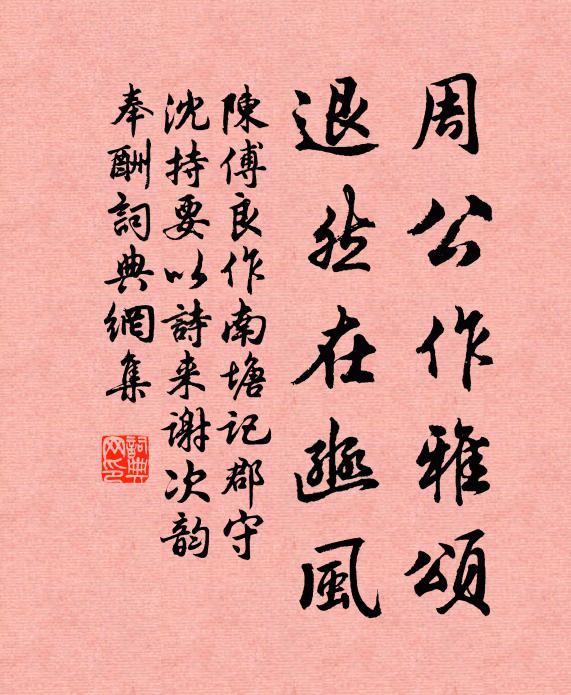 周公作雅頌
退然在豳風
陳傅良作南塘記郡守
沈持要以詩来謝次韵
奉酬詞典網集
詞典网印